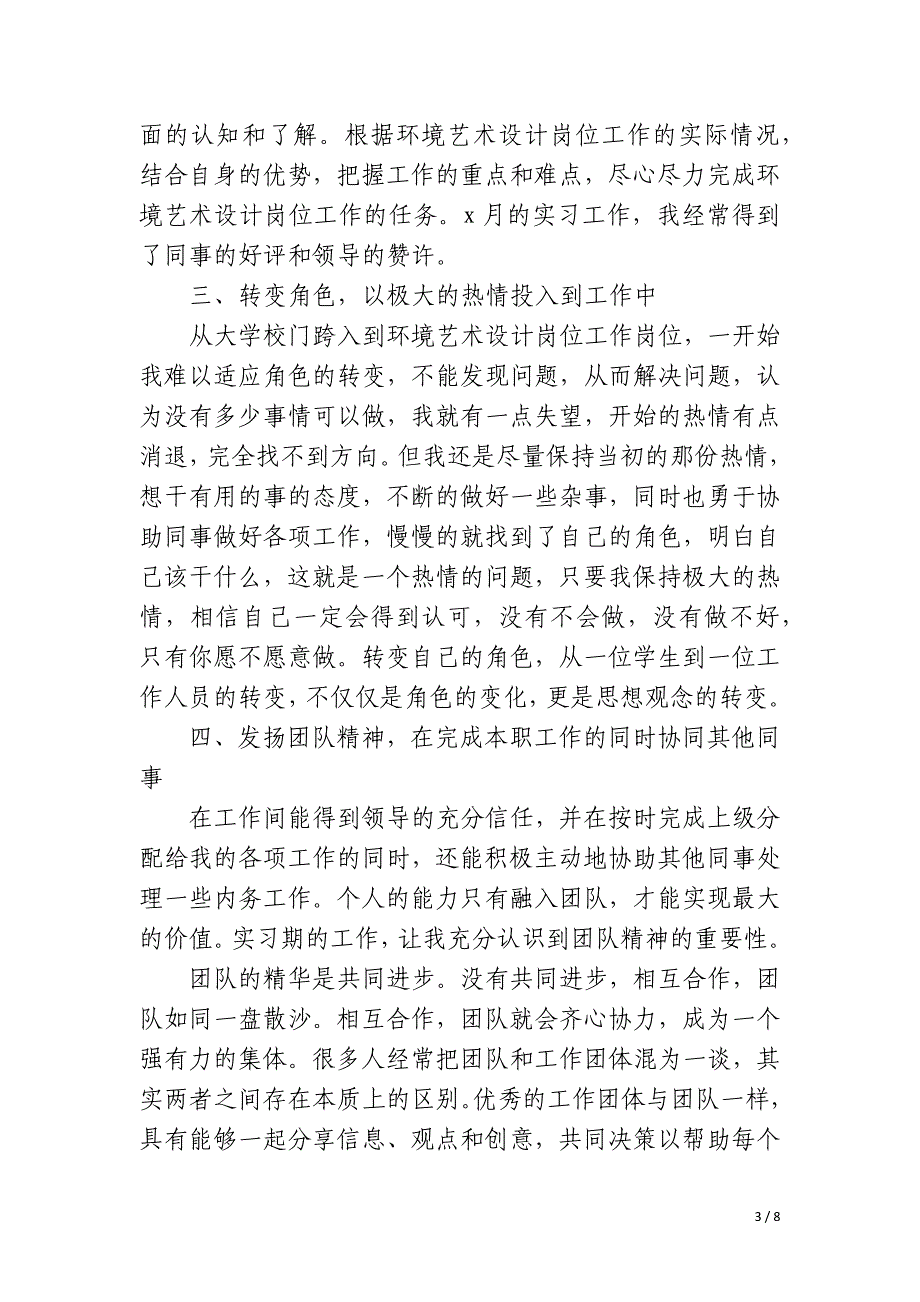 面的认知和了解。根据环境艺术设计岗位工作的实际情况，
结合自身的优势，把握工作的重点和难点，尽心尽力完成环
境艺术设计岗位工作的任务。x 月的实习工作，我经常得到
了同事的好评和领导的赞许。
三、转变角色，以极大的热情投入到工作中
从大学校门跨入到环境艺术设计岗位工作岗位，一开始
我难以适应角色的转变，不能发现问题，从而解决问题，认
为没有多少事情可以做，我就有一点失望，开始的热情有点
消退，完全找不到方向。但我还是尽量保持当初的那份热情，
想干有用的事的态度，不断的做好一些杂事，同时也勇于协
助同事做好各项工作，慢慢的就找到了自己的角色，明白自
己该干什么，这就是一个热情的问题，只要我保持极大的热
情，相信自己一定会得到认可，没有不会做，没有做不好，
只有你愿不愿意做。转变自己的角色，从一位学生到一位工
作人员的转变，不仅仅是角色的变化，更是思想观念的转变。
四、发扬团队精神，在完成本职工作的同时协同其他同
事
在工作间能得到领导的充分信任，并在按时完成上级分
配给我的各项工作的同时，还能积极主动地协助其他同事处
理一些内务工作。个人的能力只有融入团队，才能实现最大
的价值。实习期的工作，让我充分认识到团队精神的重要性。
团队的精华是共同进步。没有共同进步，相互合作，团
队如同一盘散沙。相互合作，团队就会齐心协力，成为一个
强有力的集体。很多人经常把团队和工作团体混为一谈，其
实两者之间存在本质上的区别。优秀的工作团体与团队一样，
具有能够一起分享信息、观点和创意，共同决策以帮助每个
3 / 8